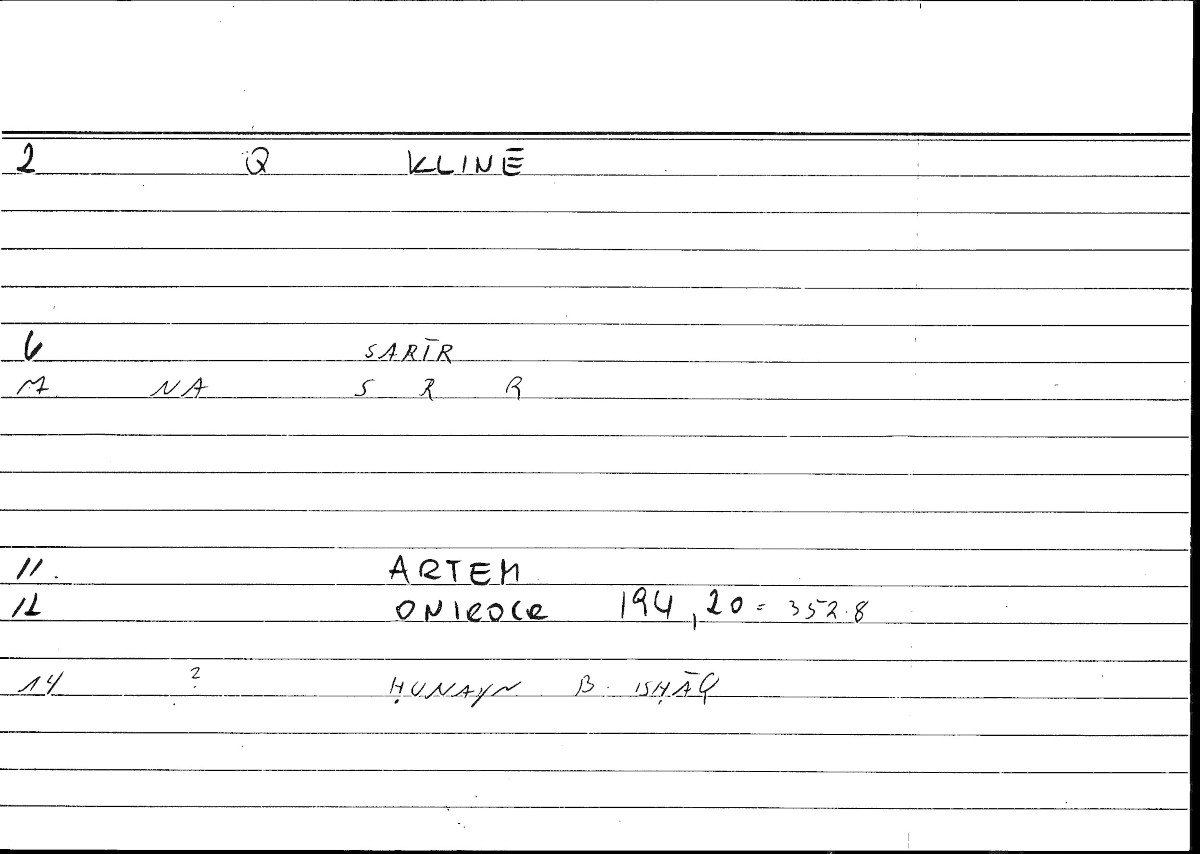 2 Q KLINĒ
6 SARĪR
M NA S R R
11. ARTEM
12 ONIROCR 194,20 = 352.8
14 ? ḤUNAYN B. ISḤĀQ